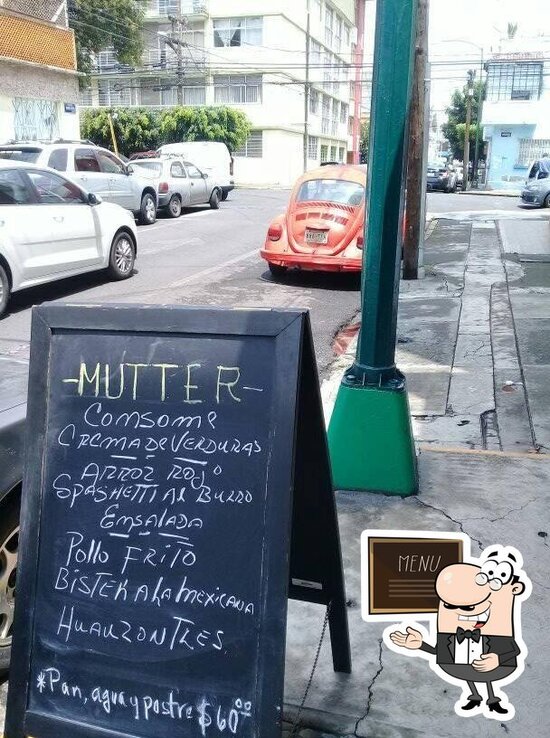 -MUTTER-
Consome
Crema de Verduras
Arroz Rojo
Spaghetti Al Burro
Ensalada
Pollo Frito
Bistek a la Mexicana
Huauzontles
*Pan, agua y postre $60.00
MENU